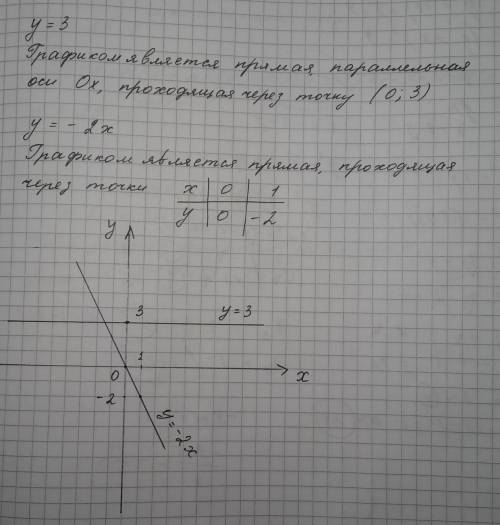 y = 3
Графиком является прямая, параллельная
оси Ox, проходящая через точку (0; 3)
y = - 2x
Графиком является прямая, проходящая
через точки x 0 1
y 0 -2
y
3 y = 3
1
0 x
-2
y = -2x